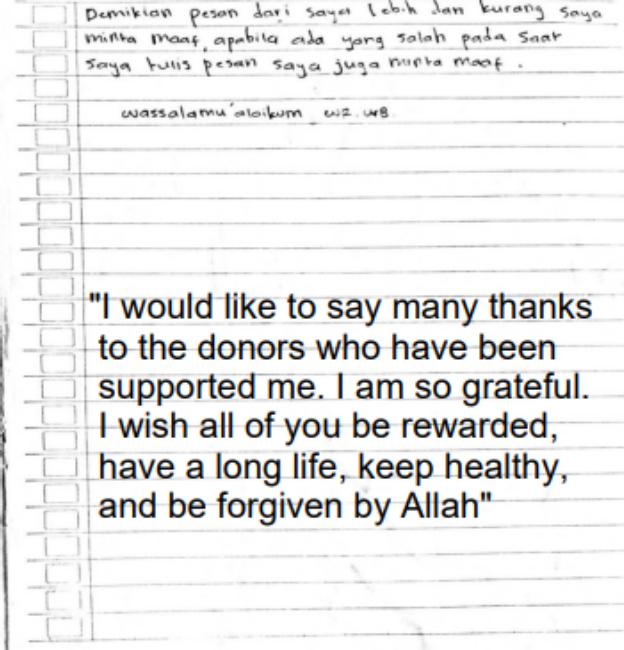 Demikian pesan dari saya lebih dan kurang saya
minta maaf, apabila ada yang salah pada saat
saya tulis pesan saya juga minta maaf.
wassalamu'alaikum wz. wb
"I would like to say many thanks
to the donors who have been
supported me. I am so grateful.
I wish all of you be rewarded,
have a long life, keep healthy,
and be forgiven by Allah"